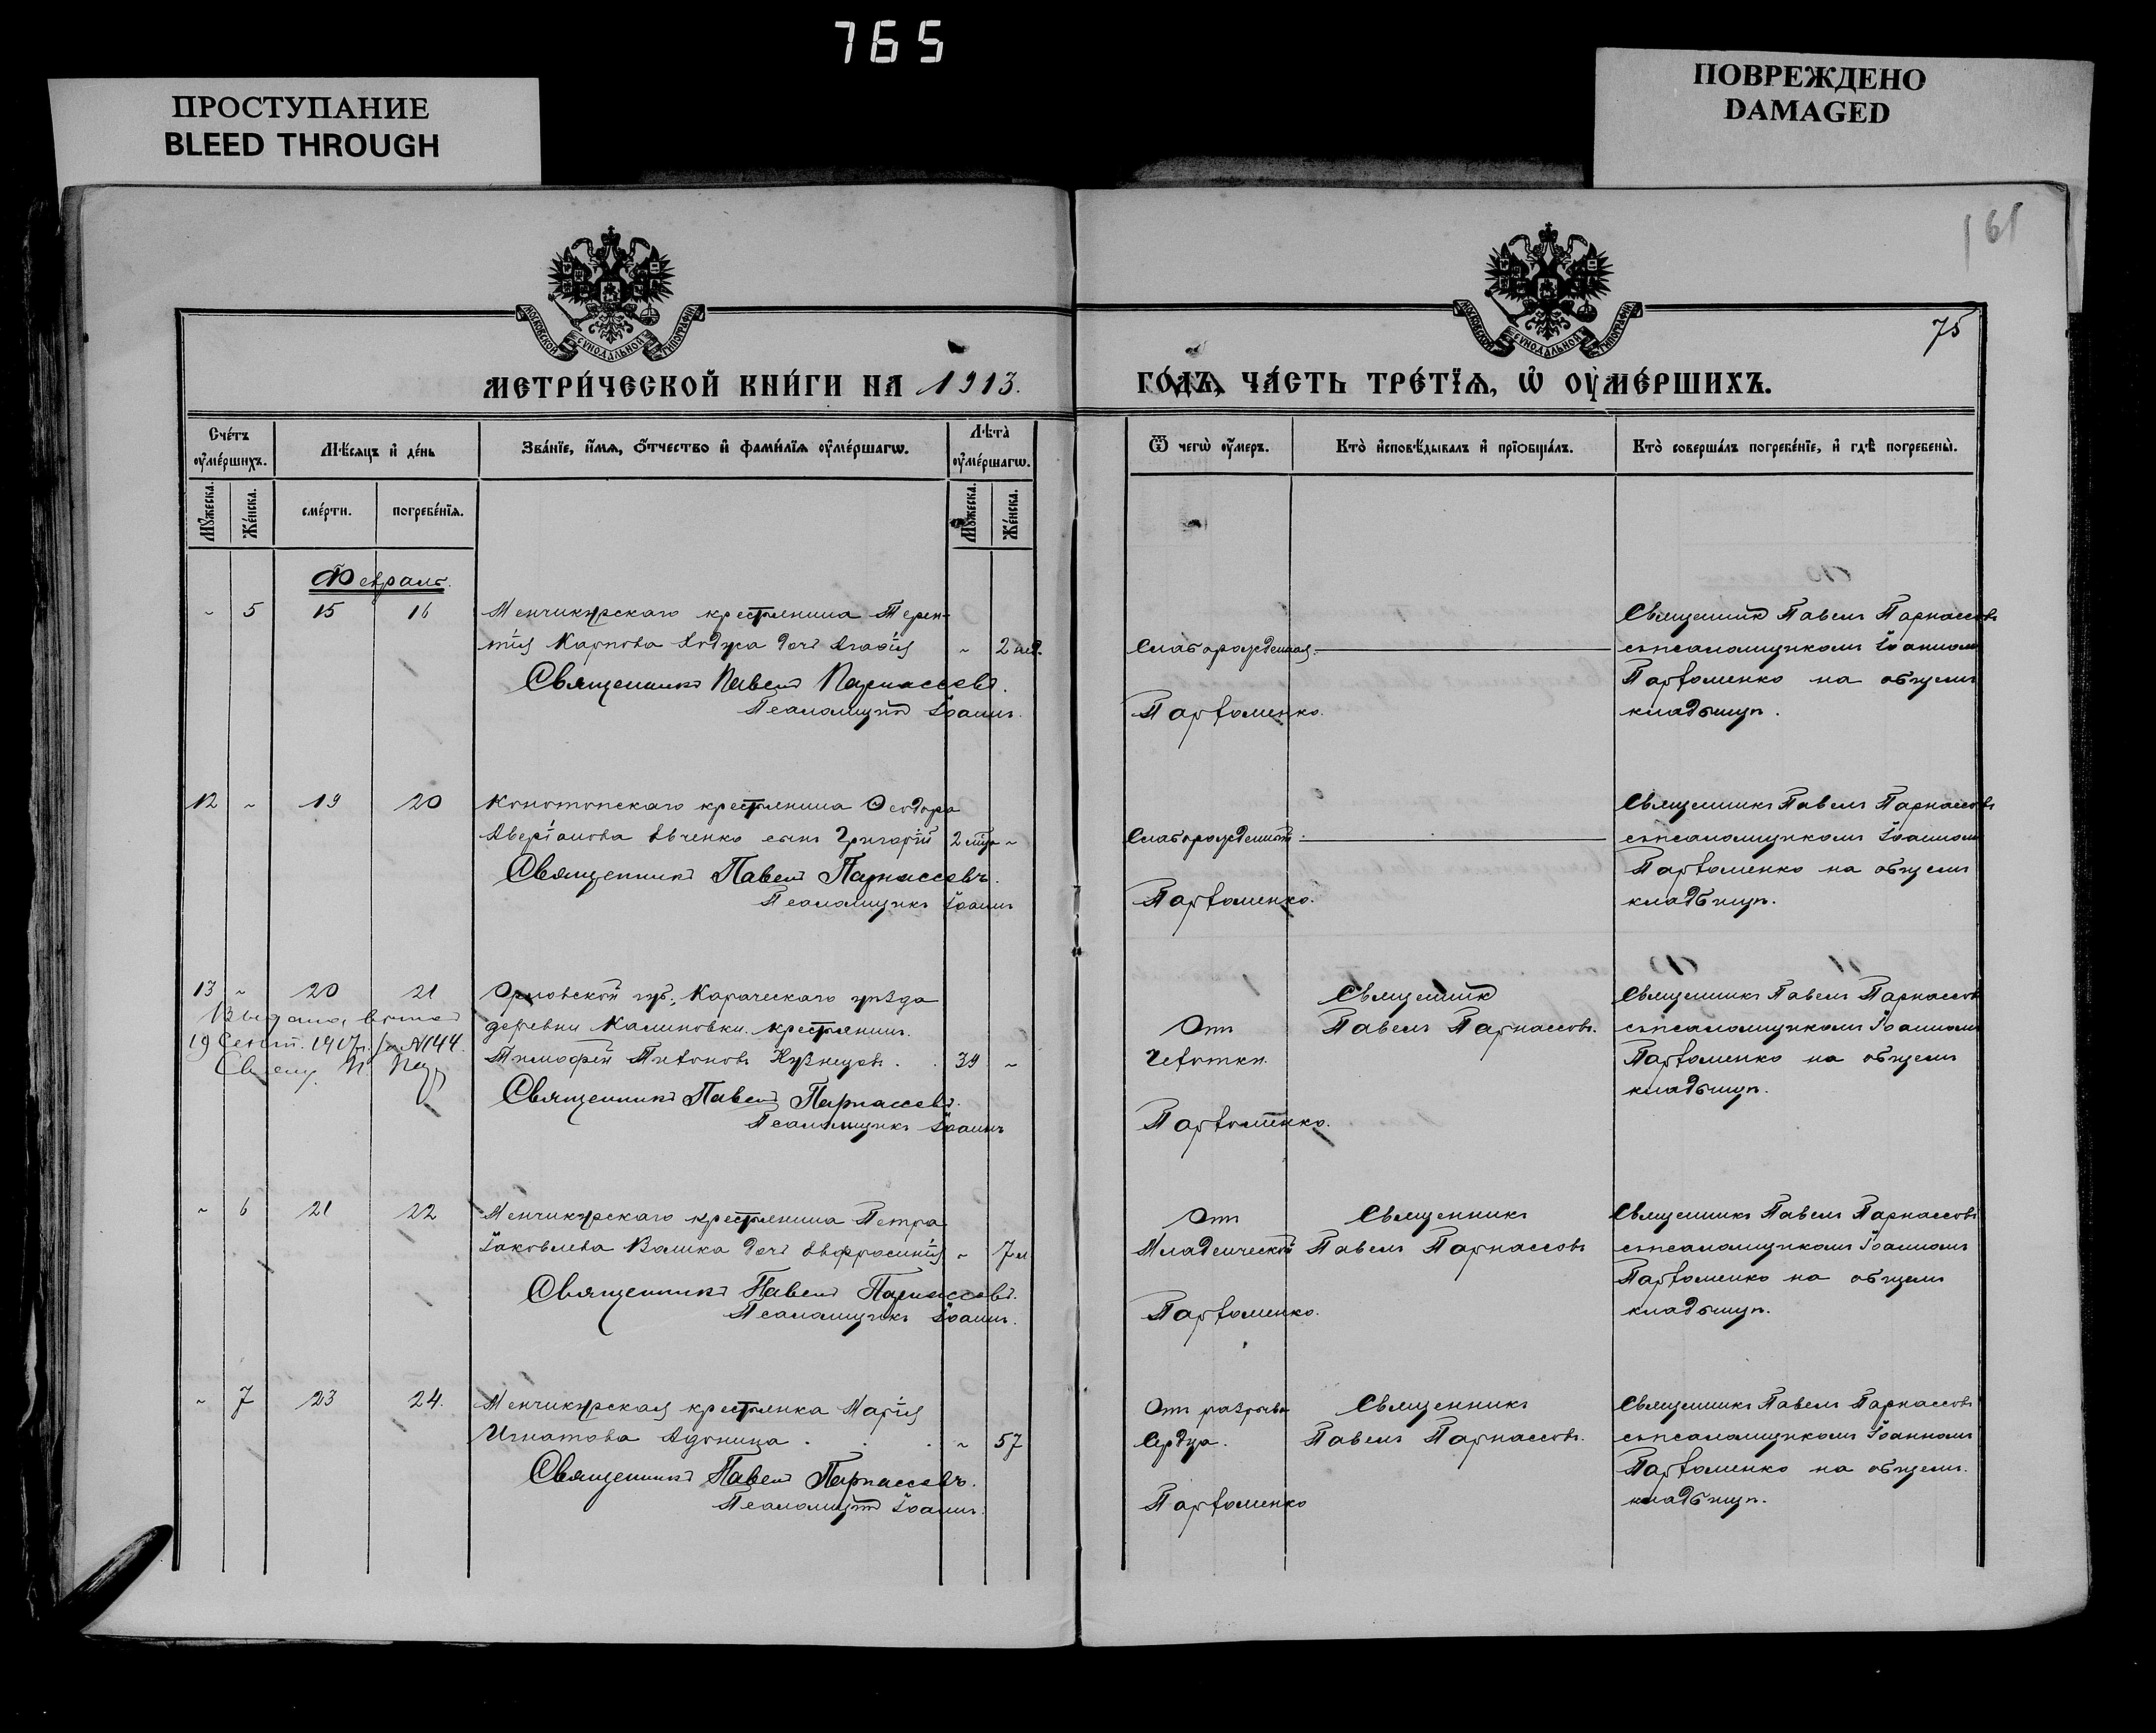 765
ПРОСТУПАНИЕ
BLEED THROUGH
ПОВРЕЖДЕНО
DAMAGED
161
75
МОСКОВСКОЙ СѴНОДАЛЬНОЙ ТИПОГРАФІИ
МОСКОВСКОЙ СѴНОДАЛЬНОЙ ТИПОГРАФІИ
МЕТРИ́ЧЕСКОЙ КНИ́ГИ НА 1913.
ГО́ДЪ, ЧА́СТЬ ТРЕ́ТЇѦ, Ѡ҆ ОУ҆МЕ́РШИХЪ.
Сче́тъ оу҆ме́ршихъ.
Мѣ́сяцъ и҆ де́нь
Зва́нїе, и҆́мя, ѻ҆́тчество и҆ фами́лїя оу҆ме́ршагѡ.
Лѣта̀ оу҆ме́ршагѡ.
Ѿ чегѡ̀ оу҆́меръ.
Кто̀ и҆сповѣ́дывалъ и҆ прїѡбща́лъ.
Кто̀ соверша́лъ погребе́нїе, и҆ гдѣ̀ погребены̀.
Мꙋ́жеска.
Же́нска.
сме́рти.
погребе́нїя.
Мꙋ́жеска.
Же́нска.
Февраль.
~ 5 15 16 Менчикурскаго крестьянина Терен-
тія Карпова дочь ~ 2 нед.
Священникъ Павелъ Парнассовъ.
Псаломщикъ Іоаннъ
Слаборожденная.
Парѳоменко.
Священникъ Павелъ Парнассовъ
съ псаломщикомъ Іоанномъ
Парѳоменко на общемъ
кладбищѣ.
12 ~ 19 20 Конотопскаго крестьянина Ѳеодора
Аверіанова Овченко сынъ Григорій 2 мѣс. ~
Священникъ Павелъ Парнассовъ.
Псаломщикъ Іоаннъ
Слаборожденный
Парѳоменко.
Священникъ Павелъ Парнассовъ
съ псаломщикомъ Іоанномъ
Парѳоменко на общемъ
кладбищѣ.
13 ~ 20 21 Орловской губ. Карачевскаго уѣзда
деревни Калиновки крестьянинъ
Тимофей Титоновъ Кузнецовъ. 39 ~
19 Сент. 1917 г. за № 144.
Священникъ Павелъ Парнассовъ.
Псаломщикъ Іоаннъ
Отъ
Чахотки
Парѳоменко.
Священникъ
Павелъ Парнассовъ.
Священникъ Павелъ Парнассовъ
съ псаломщикомъ Іоанномъ
Парѳоменко на общемъ
кладбищѣ.
~ 6 21 22 Менчикурскаго крестьянина Петра
Іаковлева Волика дочь Евфросинія ~ 7 м
Священникъ Павелъ Парнассовъ.
Псаломщикъ Іоаннъ.
Отъ
Младенческой
Парѳоменко.
Священникъ
Павелъ Парнассовъ
Священникъ Павелъ Парнассовъ
съ псаломщикомъ Іоанномъ
Парѳоменко на общемъ
кладбищѣ.
~ 7 23 24. Менчикурская крестьянка Марія
Игнатова ~ 57
Священникъ Павелъ Парнассовъ.
Псаломщикъ Іоаннъ.
Отъ разрыва
Сердца.
Парѳоменко
Священникъ
Павелъ Парнассовъ.
Священникъ Павелъ Парнассовъ
съ псаломщикомъ Іоанномъ
Парѳоменко на общемъ
кладбищѣ.